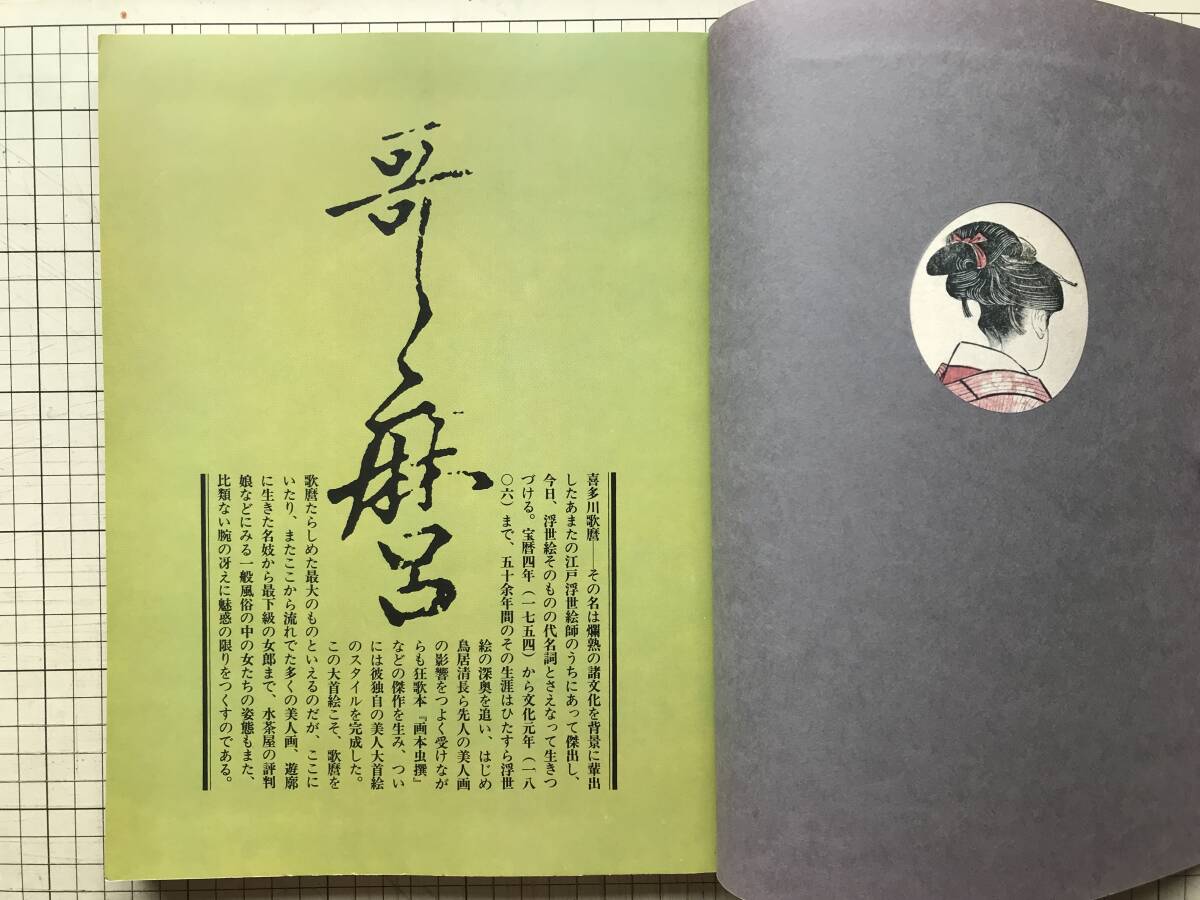 哥麿
喜多川歌麿――その名は爛熟の諸文化を背景に輩出
したあまたの江戸浮世絵師のうちにあって傑出し、
今日、浮世絵そのものの代名詞とさえなって生きつ
づける。宝暦四年（一七五四）から文化元年（一八
〇六）まで、五十余年間のその生涯はひたすら浮世
絵の深奥を追い、はじめ
鳥居清長ら先人の美人画
の影響をつよく受けなが
らも狂歌本『画本虫撰』
などの傑作を生み、つい
には彼独自の美人大首絵
のスタイルを完成した。
この大首絵こそ、歌麿を
歌麿たらしめた最大のものといえるのだが、ここに
いたり、またここから流れでた多くの美人画、遊廓
に生きた名妓から最下級の女郎まで、水茶屋の評判
娘などにみる一般風俗の中の女たちの姿態もまた、
比類ない腕の冴えに魅惑の限りをつくすのである。